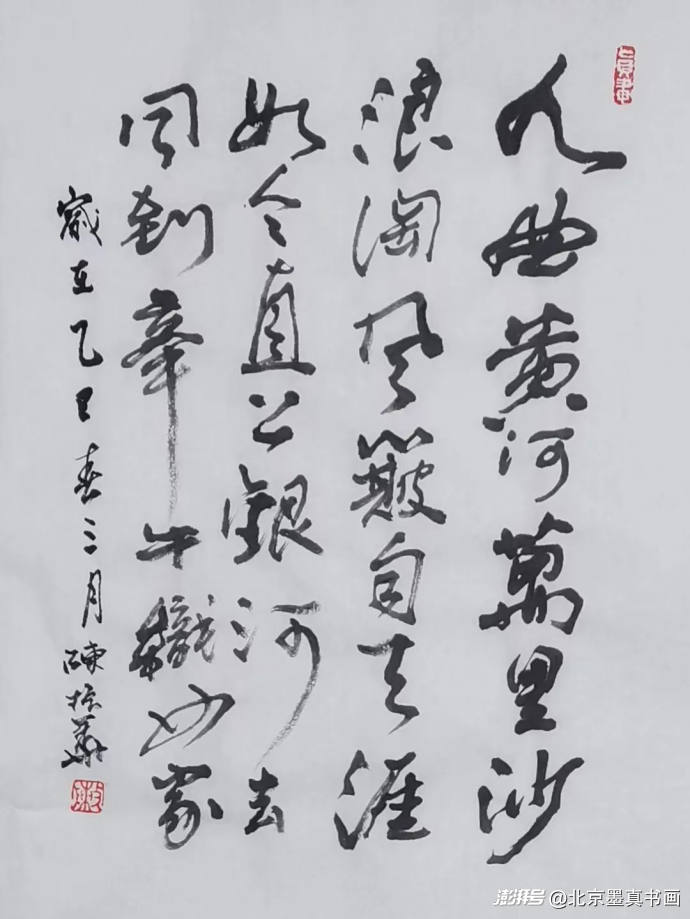 九曲黄河萬里沙
浪淘風簸自天涯
如今直上銀河去
同到牽牛織女家
歲在乙巳春三月 陳振華
澎湃号 @北京墨真书画